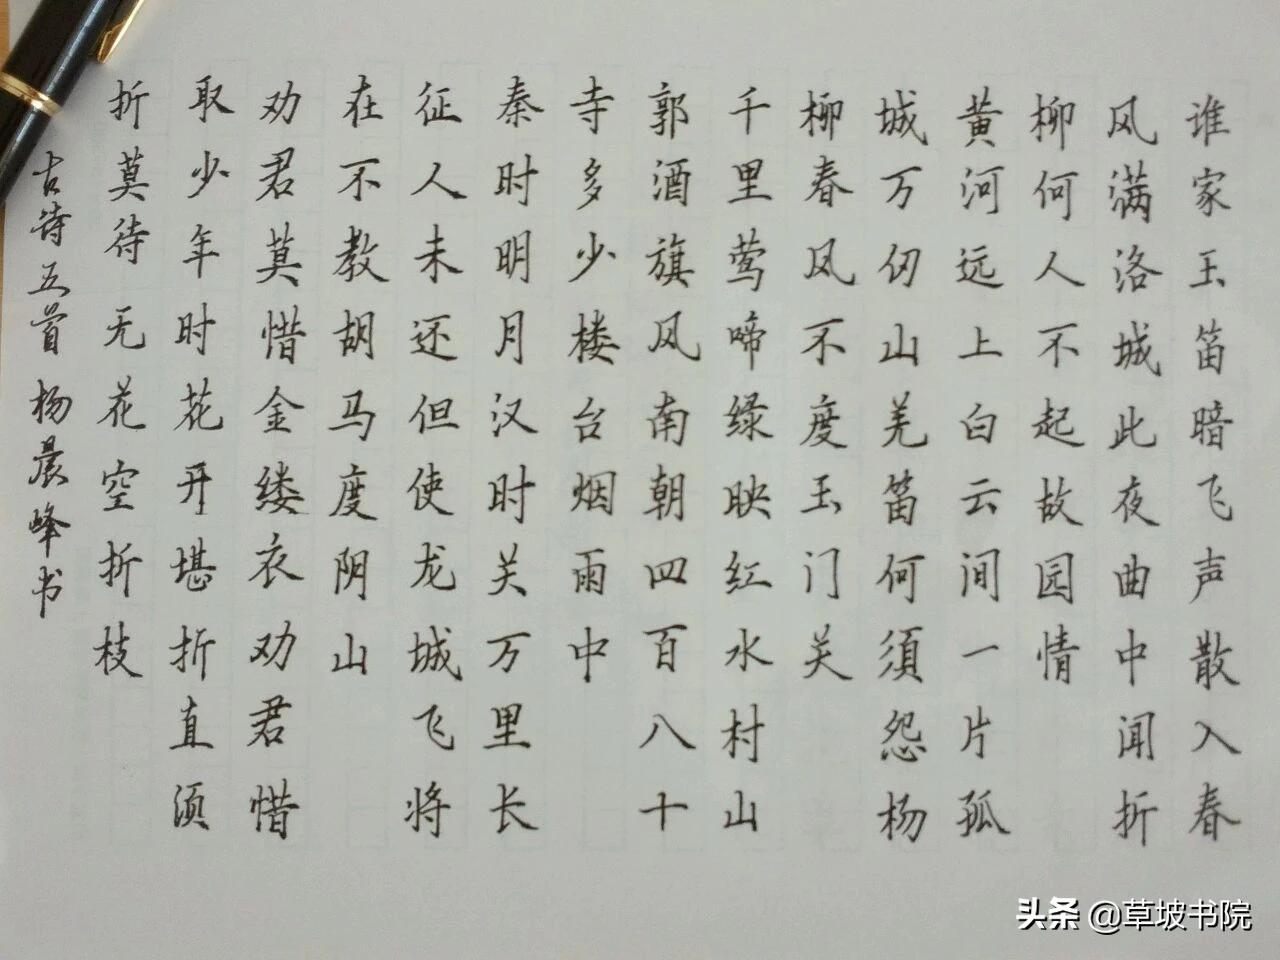 谁家玉笛暗飞声散入春
风满洛城此夜曲中闻折
柳何人不起故园情
黄河远上白云间一片孤
城万仞山羌笛何须怨杨
柳春风不度玉门关
千里莺啼绿映红水村山
郭酒旗风南朝四百八十
寺多少楼台烟雨中
秦时明月汉时关万里长
征人未还但使龙城飞将
在不教胡马度阴山
劝君莫惜金缕衣劝君惜
取少年时花开堪折直须
折莫待无花空折枝
古诗五首杨晨峰书
头条 @草坡书院